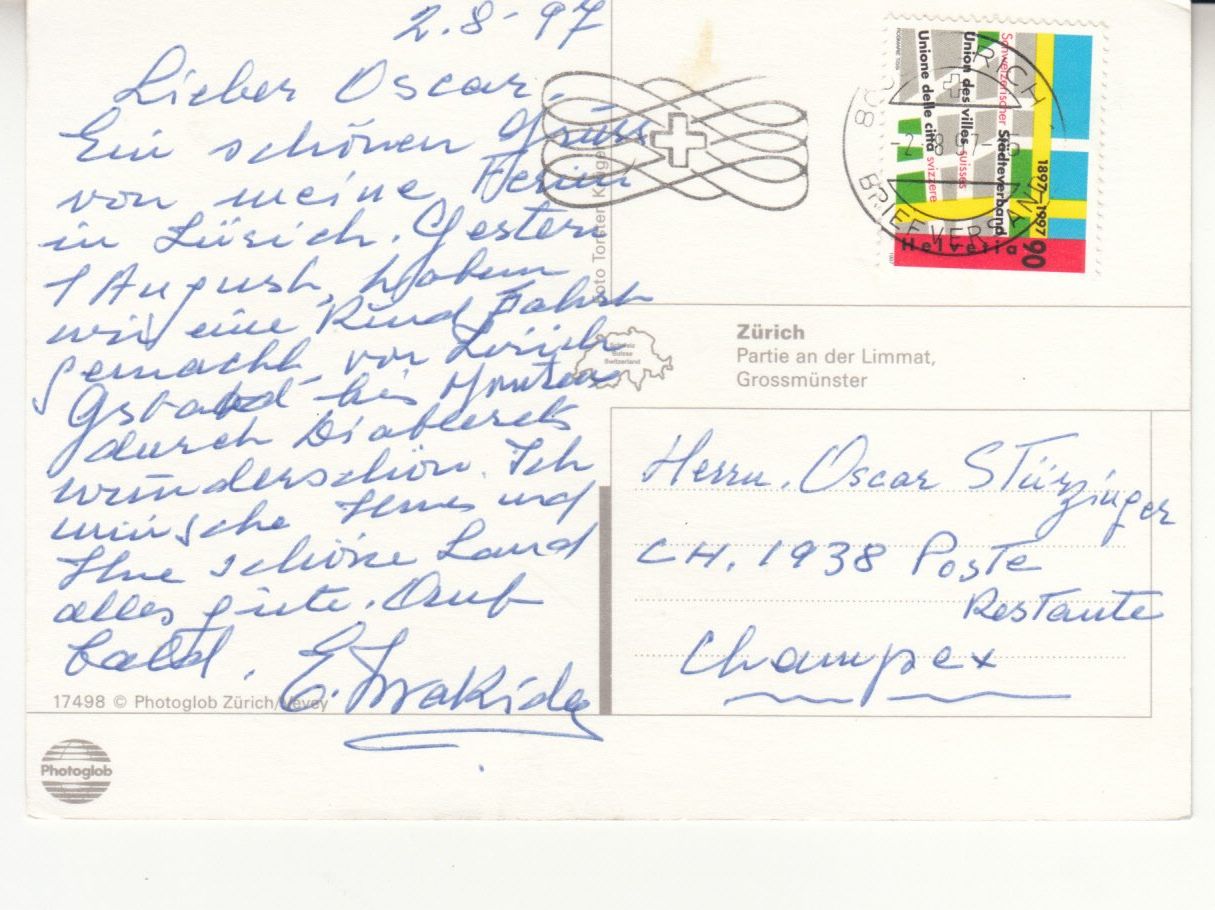 2.8-97
Lieber Oscar.
Ein schönen Gruss
von meine Ferien
in Zürich. Gestern
1 August, haben
wir eine Rund Fahrt
gemacht von Zürich
bis
durch Diablerets
wunderschön. Ich
wünsche Ihnes und
Ihne schöne Land
alles gute. Auf
bald.
17498 © Photoglob Zürich/Vevey
Photoglob
Foto Torsten
Schweiz
Suisse
Switzerland
Zürich
Partie an der Limmat,
Grossmünster
Schweizerischer Städteverband
Union des villes suisses
Unione delle città svizzere
1897-1997
Helvetia 90
BRIEFVERSAND
Herrn. Oscar Stürzinger
CH. 1938 Poste
Restante
Champex